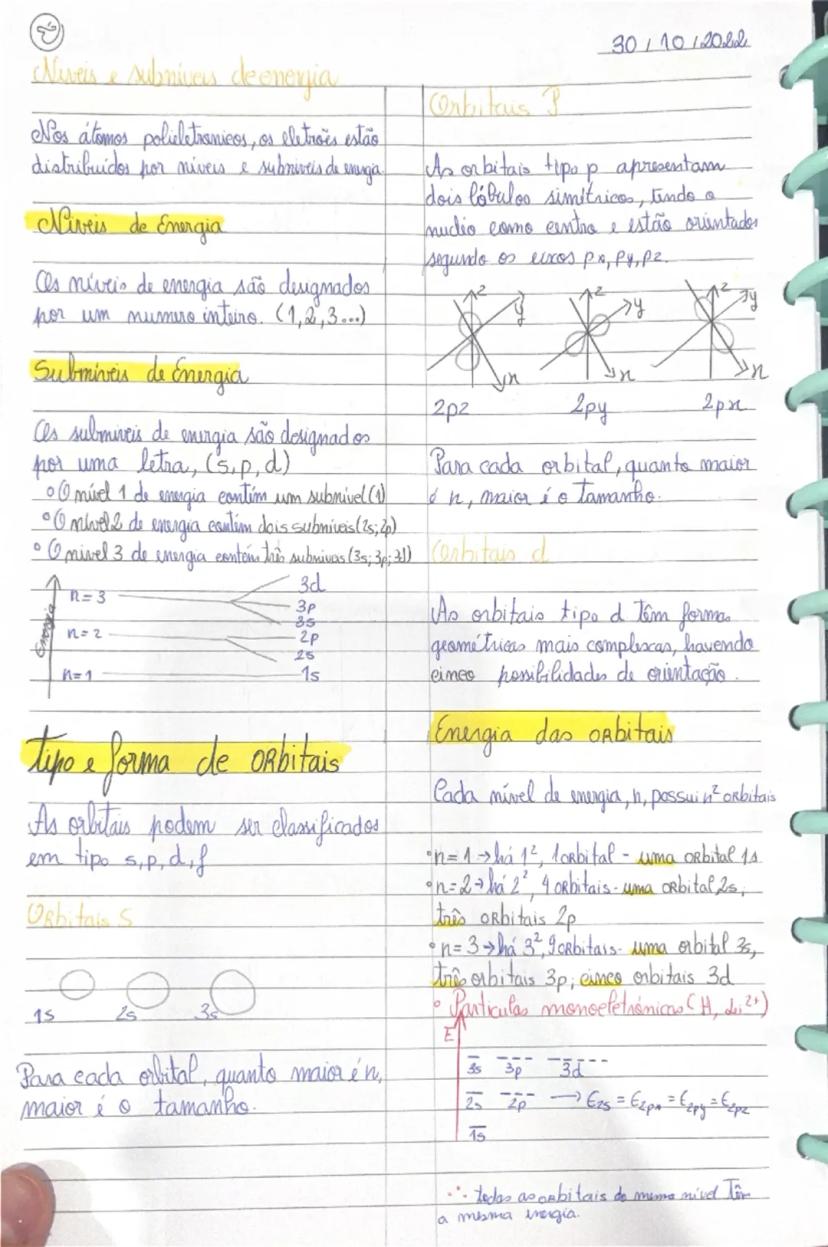 30/10/2022
Níveis e subníveis de energia
Nos átomos polieletrónicos, os eletrões estão
distribuídos por níveis e subníveis de energia.
Níveis de Energia
Os níveis de energia são designados
por um número inteiro. (1,2,3...)
Subníveis de Energia
Os subníveis de energia são designados
por uma letra, (s,p,d)
• O nível 1 de energia contém um subnível (1)
• O nível 2 de energia contém dois subníveis (2s; 2p)
• O nível 3 de energia contém três subníveis (3s; 3p; 3d)
Energia
n=3
3d
3p
3s
n=2
2p
2s
n=1
1s
tipo e forma de orbitais
As orbitais podem ser classificados
em tipo s,p,d,f
Orbitais S
1s 2s 3s
Para cada orbital, quanto maior é n,
maior é o tamanho.
Orbitais P
As orbitais tipo p apresentam
dois lóbulos simétricos, tendo o
nucleo como centro e estão orientados
segundo os eixos px, py, pz.
z y x
z y x
z y x
2pz 2py 2px
Para cada orbital, quanto maior
é n, maior é o tamanho.
Orbitais d
As orbitais tipo d têm formas
geométricas mais complexas, havendo
cinco possibilidades de orientação.
Energia das orbitais
Cada nível de energia, n, possui n² orbitais
• n=1 → há 1², 1 orbital - uma orbital 1s
• n=2 → há 2², 4 orbitais - uma orbital 2s,
três orbitais 2p
• n=3 → há 3², 9 orbitais - uma orbital 3s,
três orbitais 3p; cinco orbitais 3d
• Partículas monoeletrónicas (H, Li²⁺)
E
3s 3p 3d
2s 2p → E2s = E2px = E2py = E2pz
1s
∴ todas as orbitais do mesmo nível Têm
a mesma energia.